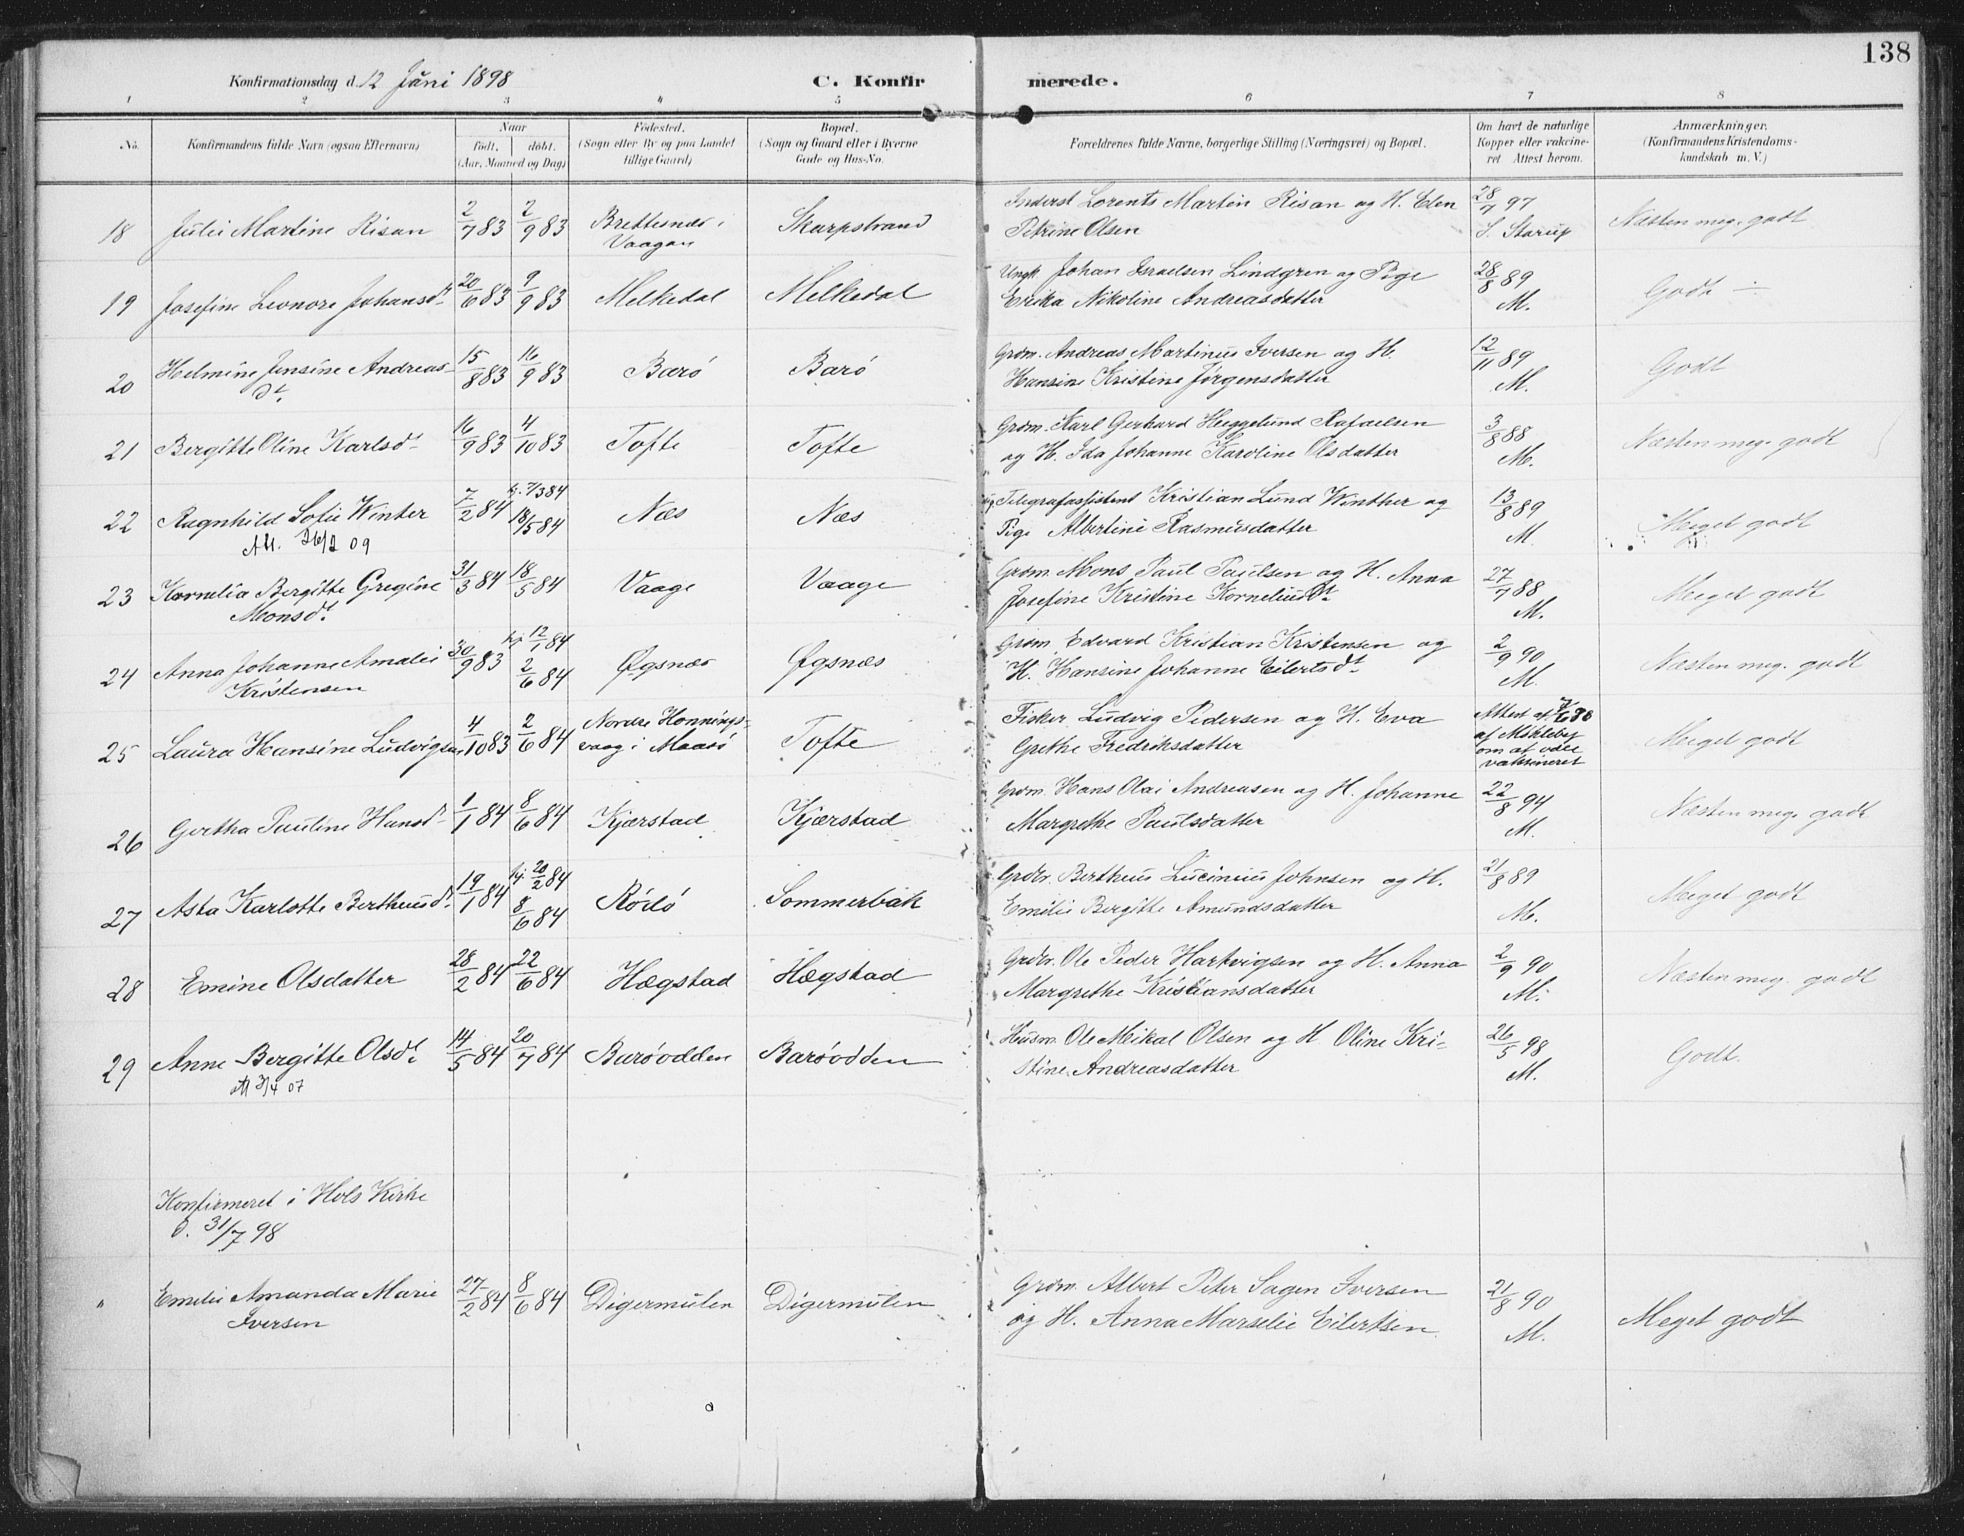 138
Konfirmationsdag d. 12 Juni 1898 C. Konfir merede.
1 2 3 4 5 6 7 8
No. Konfirmandens fulde Navn (ogsaa Efternavn) Naar født, døbt. (Aar, Maaned og Dag) Fødested. (Sogn eller By og paa Landet tillige Gaard) Bopæl. (Sogn og Gaard eller i Byerne Gade og Hus-No. Forældrenes fulde Navne, borgerlige Stilling (Næringsvei) og Bopæl. Om havt de naturlige Kopper eller vakcineret Attest herom. Anmærkninger. (Konfirmandens Kristendomskundskab m. V.)
18 Julie Martine Risan 2/7 83 2/9 83 Brettesnæs i Vaagan Skarpstrand Inderst Lorents Martin Risan og H. Elen Petrine Olsen 28/7 97 S. Starup Næsten meg. godt
19 Josefine Leonore Johansdt. 20/6 83 9/9 83 Melkedal Melkedal Ungk. Johan Israelsen Lindgren og Pige Erika Nikoline Andreasdatter 28/8 89 M. Godt —
20 Helmine Jensine Andreasdt. 15/8 83 16/9 83 Barø Barø Grdm. Andreas Martinus Iversen og H. Hansine Kristine Jørgensdatter 12/11 89 M. Godt
21 Bergitte Oline Karlsdt. 16/9 83 4/10 83 Tofte Tofte Grdm. Karl Gerhard Heggelund Rafaelsen og H. Ida Johanne Karoline Olsdatter 3/8 88 M. Næsten meg. godt
22 Ragnhild Sofie Winter 7/2 84 hj. 7/3 84 18/5 84 Næs Næs Telegrafassistent Kristian Lund Winther og Pige Albertine Rasmusdatter 13/8 89 M. Meget godt
Att. 26/2 09
23 Kornelia Bergitte Gregine Monsdt. 31/3 84 18/5 84 Vaage Vaage Grdm. Mons Paul Paulsen og H. Anna Josefine Kristine Korneliusdt. 27/7 88 M. Meget godt
24 Anna Johanne Amalie Kristensen 30/9 83 hj. 12/1 84 2/6 84 Øgsnæs Øgsnæs Grdm. Edvard Kristian Kristensen og H. Hansine Johanne Eilertsdt. 2/9 90 M. Næsten meg. godt
25 Laura Hansine Ludvigsen 4/10 83 2/6 84 Nordre Honningsvaag i Maasø Tofte Fisker Ludvig Pedersen og H. Eva Grethe Fredriksdatter Attest af af Mikleby om at være vaksineret Meget godt
26 Gertha Pauline Hansdt. 1/1 84 8/6 84 Kjærstad Kjærstad Grdm. Hans Olai Andreasen og H. Johanne Margrethe Paulsdatter 22/8 94 M. Næsten meg. godt
27 Asta Karlotte Bertheusdt. 19/1 84 hj. 20/2 84 8/6 84 Rødø Sommerbak Grdbr. Bertheus Lucinius Johnsen og H. Emilie Bergitte Amundsdatter 21/8 89 M. Meget godt
28 Emine Olsdatter 28/2 84 22/6 84 Hægstad Hægstad Grdbr. Ole Peder Hartvigsen og H. Anna Margrethe Kristiansdatter 2/9 90 M. Næsten meg. godt
29 Anne Bergitte Olsdt. 14/5 84 20/7 84 Barøodden Barøodden Husm. Ole Mikal Olsen og H. Oline Kristine Andreasdatter 26/5 98 M. Godt.
Att 3/4 07
Konfirmeret i Hols Kirke
d. 31/7 98
" Emelie Amanda Marie Iversen 27/2 84 8/6 84 Digermulen Digermulen Grdm. Albert Peter Sagen Iversen og H. Anna Marselie Eilertsen 21/8 90 M. Meget godt